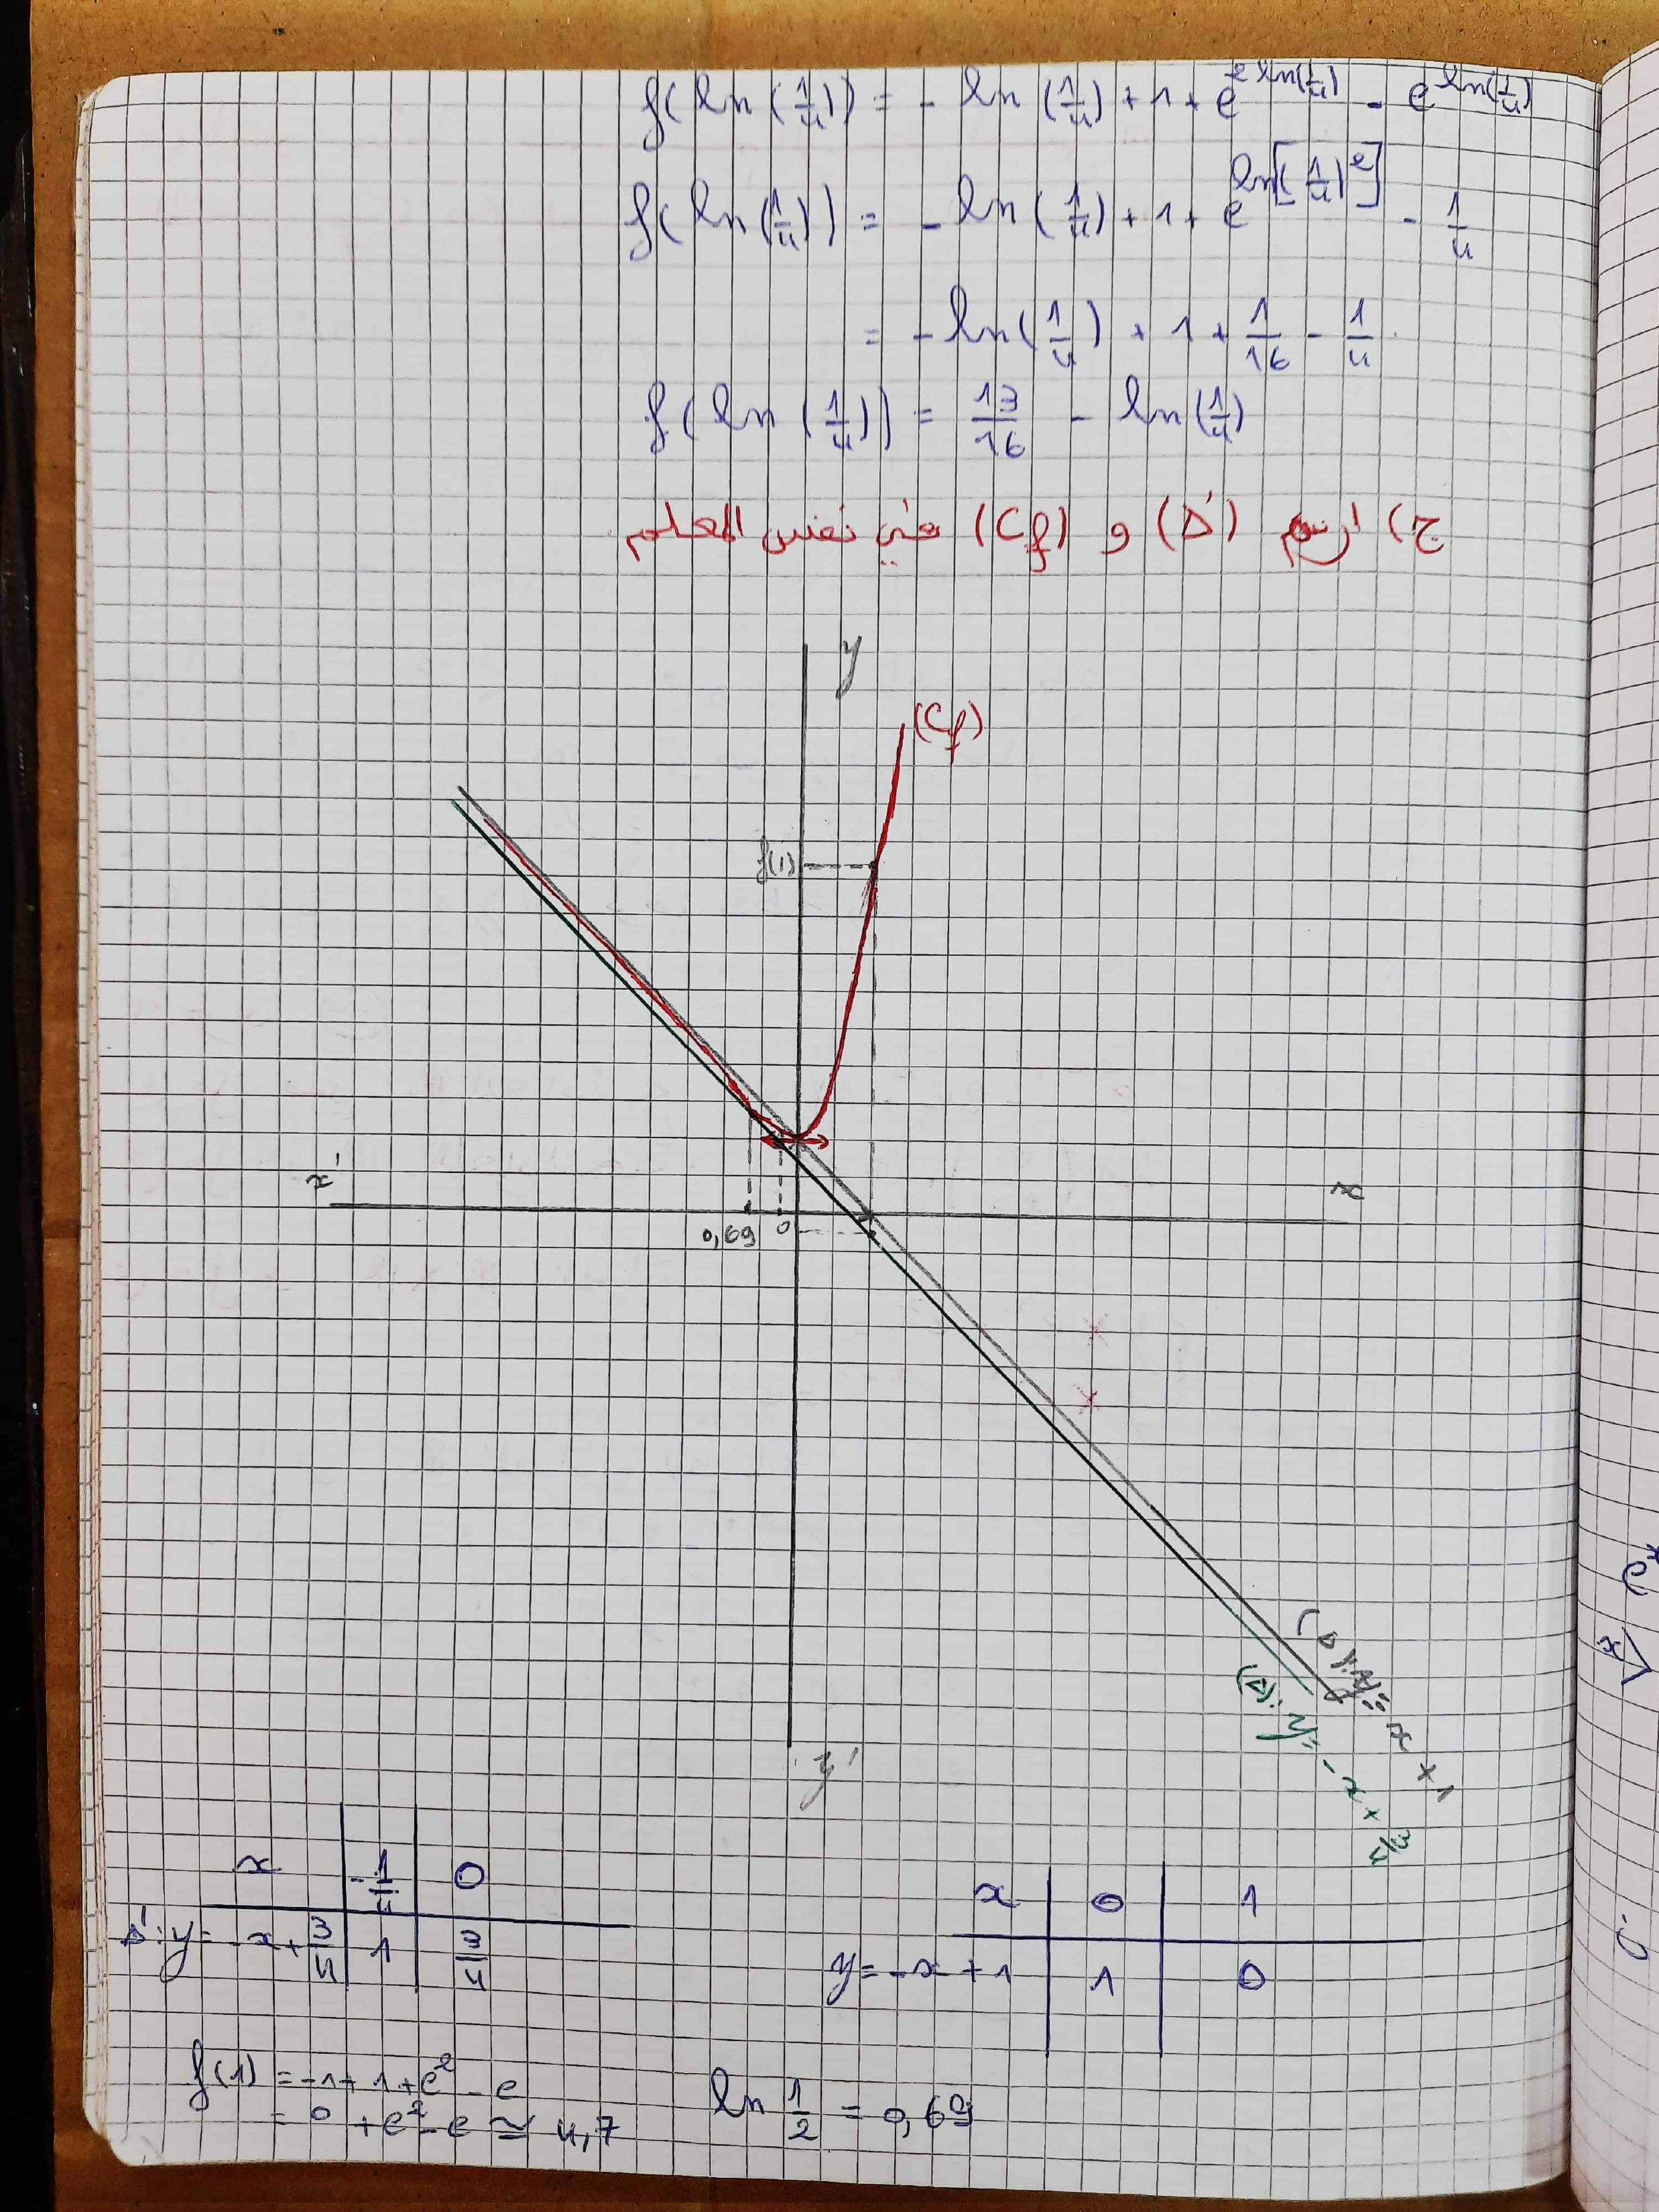 f(ln(1/4)) = - ln(1/4) + 1 + e^{2 ln(1/4)} - e^{ln(1/4)}
f(ln(1/4)) = - ln(1/4) + 1 + e^{ln[(1/4)^2]} - 1/4
= - ln(1/4) + 1 + 1/16 - 1/4
f(ln(1/4)) = 13/16 - ln(1/4)
ج) ارسم (Δ') و (Cf) في نفس المعلم
y
(Cf)
f(1)
x'
x
0,69
0
y'
(Δ'): y = -x + 3/4
x | -1/4 | 0
Δ': y = -x + 3/4 | 1 | 3/4
x | 0 | 1
y = -x + 1 | 1 | 0
f(1) = -1 + 1 + e^2 - e
= 0 + e^2 - e ≃ 4,7
ln 1/2 = 0,69